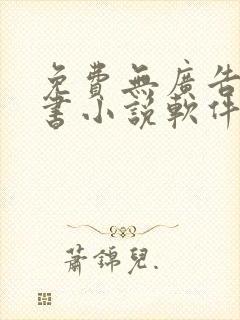 免費無廣告
書小說軟件
蕭錦兒.